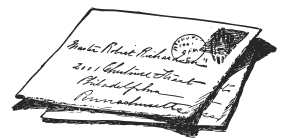 Master Robert Richardson
2001 Chestnut Street
Philadelphia
Pennsachusetts